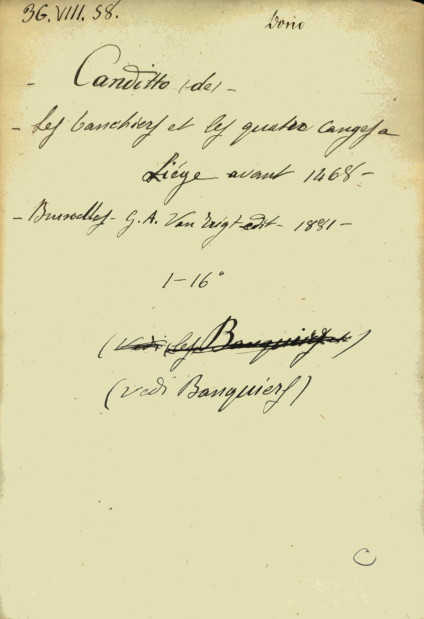 3G.VIII.58. Dono
- Canditto (-de) -
- Les banchiers et les quatre canges a
Liége avant 1468 -
- Bruxelles - G. A. Van Trigt edit - 1881 -
1-16°
(Vedi les Banquiers)
(Vedi Banquiers)
C